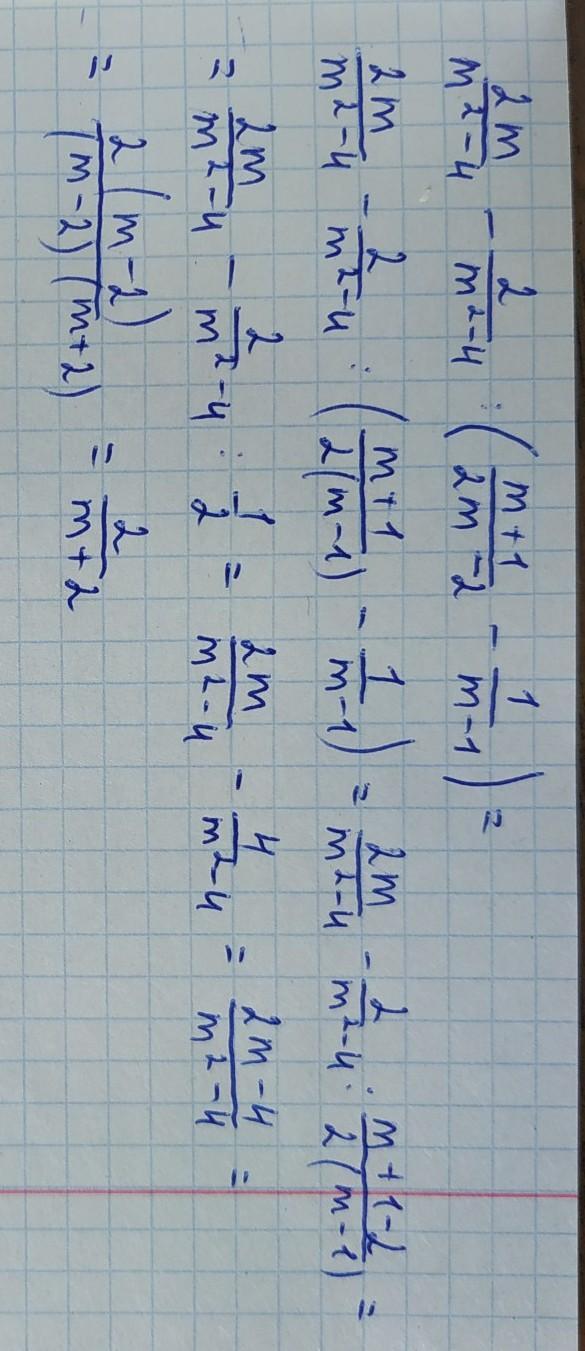 2m/(m²-4) - 2/(m²-4) : ((m+1)/(2m-2) - 1/(m-1)) =
2m/(m²-4) - 2/(m²-4) : ((m+1)/(2(m-1)) - 1/(m-1)) = 2m/(m²-4) - 2/(m²-4) : (m+1-2)/(2(m-1)) =
= 2m/(m²-4) - 2/(m²-4) : 1/2 = 2m/(m²-4) - 4/(m²-4) = (2m-4)/(m²-4) =
= 2(m-2)/((m-2)(m+2)) = 2/(m+2)